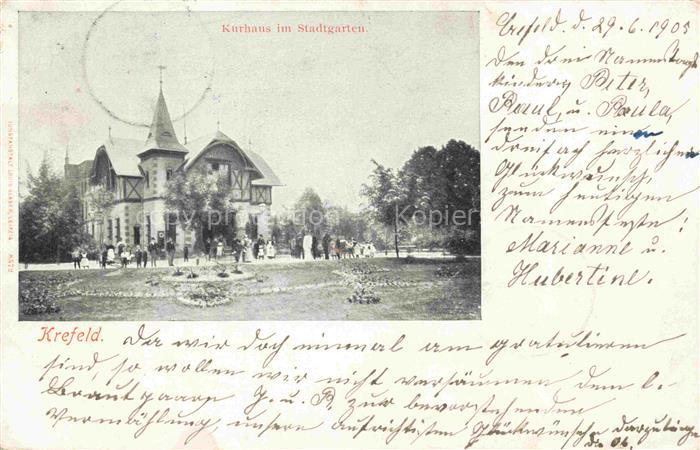 Kurhaus im Stadtgarten.
Crefeld. d. 29.6.1905
Den drei Namenstags
kindern Peter,
Paul, u. Paula,
senden einen
dreifach herzlichen
Glückwunsch
zum heutigen
Namensfeste!
Marianne u.
Hubertine.
Krefeld.
Da wir doch einmal am gratulieren
sind, so wollen wir nicht versäumen dem l.
Brautpaare J. u. P. zur bevorstehenden
Vermählung, unsere aufrichtigsten Glückwünsche darzubringen
die Ob.
Kopier